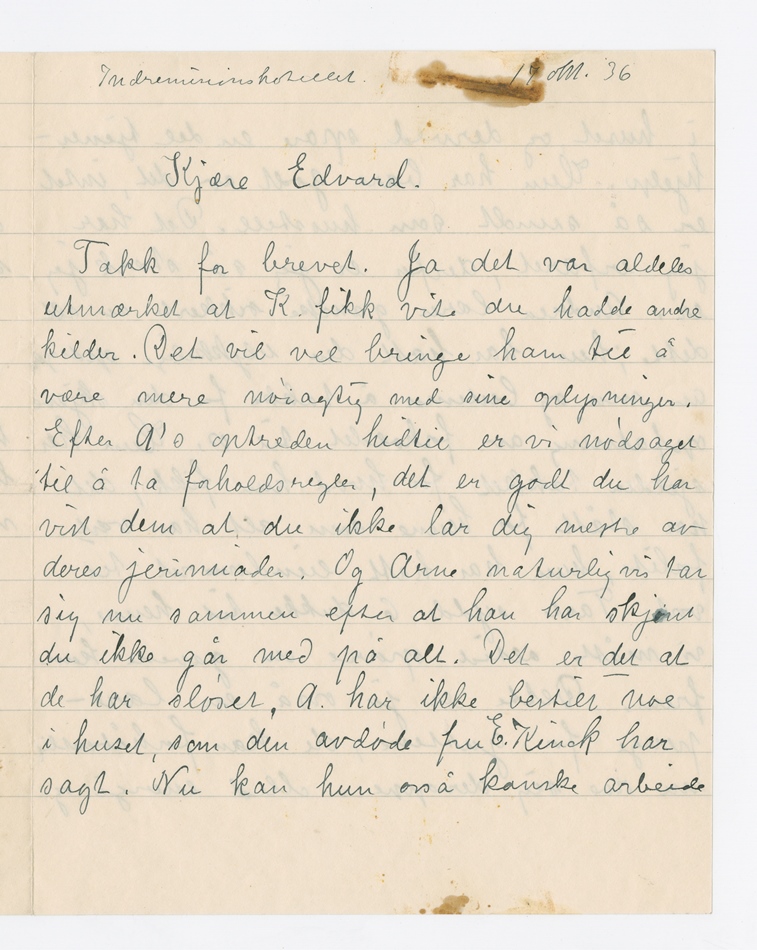 Indremisionshotellet. 17 okt. '36
Kjære Edvard.
Takk for brevet. Ja det var aldeles
utmærket at K. fikk vite du hadde andre
kilder. Det vil vel bringe ham til å
være mere nøiagtig med sine oplysninger.
Efter A's optreden hidtil er vi nødsaget
til å ta forholdsregler, det er godt du har
vist dem at du ikke lar dig mestre av
deres jerimiader. Og Arne naturligvis tar
sig nu sammen efter at han har skjønt
du ikke går med på alt. Det er det at
de har sløset, A. har ikke bestilt noe
i huset, som den avdøde fru E. Kinck har
sagt. Nu kan hun også kanske arbeide